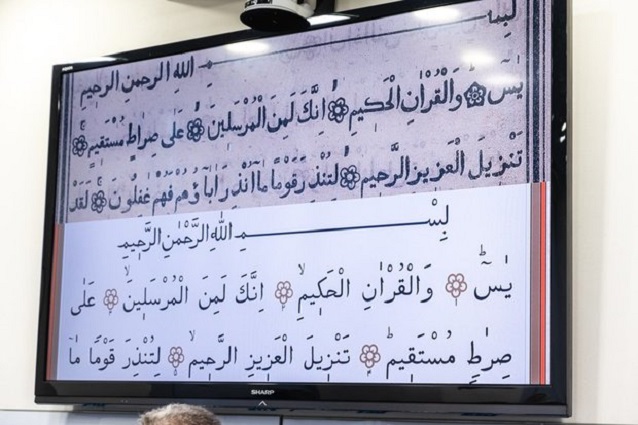 بِسْـــمِ اللهِ الرحمنِ الرحيمِ
يٰسٓ وَالْقُرْاٰنِ الْحَكيمِ اِنَّكَ لَمِنَ الْمُرْسَلينَ عَلى صِراطٍ مُسْتَقيمٍ
تَنْزيلَ الْعَزيزِ الرَّحيمِ لِتُنْذِرَ قَوْمًا مآ اُنْذِرَ اٰبآؤُهُمْ فَهُمْ غافِلُونَ لَقَدْ
بِسْـــــمِ اللهِ الرَّحْمٰنِ الرَّحِيمِ
يٰسٓ وَالْقُرْاٰنِ الْحَكيمِ اِنَّكَ لَمِنَ الْمُرْسَلينَ عَلٰى
صِرٰطٍ مُسْتَقيمٍ تَنْزيلَ الْعَزيزِ الرَّحيمِ لِتُنْذِرَ قَوْمًا مآ
SHARP